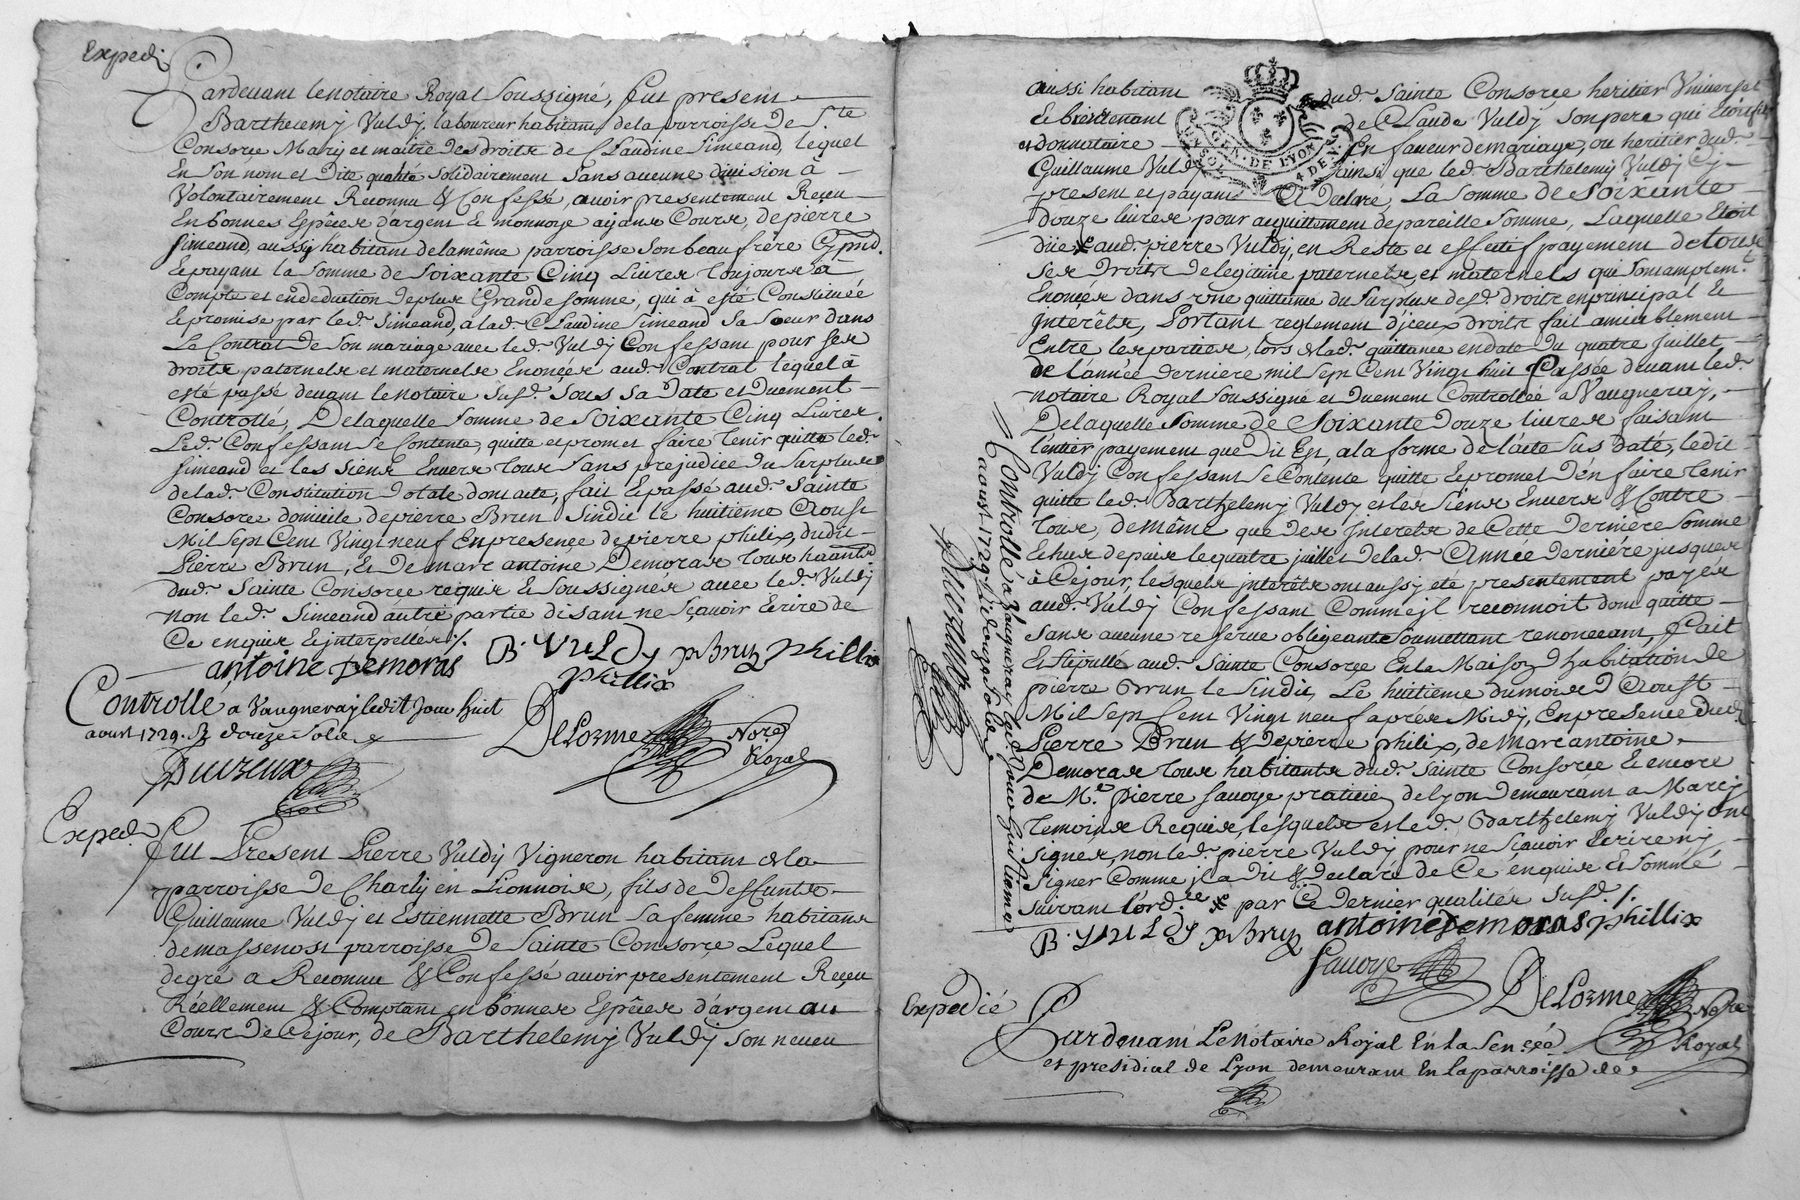 Expedié
Pardevant le notaire Royal soussigné, fut present
Barthelemy Vuldy laboureur habitant de la parroisse de Ste
Consorce Mary et maitre des droits de Claudine Simeand, lequel
En son nom et dite qualité solidairement sans aucune division à
Volontairement Reconnu & Confessé, avoir presentement Receu
En bonnes Espêces d'argent & monnoye ayant Cours, de pierre
Simeand, aussy habitant de la même parroisse son beau frère
& payant la somme de Soixante Cinq Livres toujours à
Compte et en deduction de plus Grande somme, qui à esté Constituée
& promise par led. Simeand, a lad. Claudine Simeand sa soeur dans
Le Contrat de son mariage avec led. Vuldy Confessant pour ses
droits paternels et maternels Enoncés aud. Contrat lequel à
esté passé devant le notaire susd. sous sa Date et Duement
Controllé, De laquelle somme de Soixante Cinq Livres
Led. Confessant se Contente, quitte et promet faire tenir quitte led.
Simeand et les siens Envers tous sans prejudice du surplus
de lad. Constitution dotale dont acte, fait & passé aud. Sainte
Consorce domicile de pierre Brun Sindic le huitième Aoust
Mil sept Cent Vingt neuf En presence de pierre philix, dudit
Pierre Brun, & de marc antoine Demoras tous habitants
dud. Sainte Consorce requis & soussignés avec led. Vuldy
non led. Simeand autre partie disant ne sçavoir Ecrire de
Ce enquis & interpellés /.
antoine Demoras B. VULDY p brun phillix
phillix
Controllé a Vaugneray ledit Jour huit
aoust 1729. R douze sols
DeLorme Notre
Royal
Expedié
Fut Present Pierre Vuldy Vigneron habitant de la
parroisse de Charly en Lionnois, fils de deffunts
Guillaume Vuldy et Estiennette Brun sa femme habitans
de massenost parroisse de Sainte Consorce Lequel
de gré a Reconnu & Confessé avoir presentement Receu
Réellement & Comptant en bonnes Espêces d'argent au
Cours de Cejour, de Barthelemy Vuldy son neveu
aussi habitant dud. Sainte Consorce heritier Universel
& bientenant de Claude Vuldy son pere qui Etoit
et donnataire En faveur de mariage, ou heritier dud.
Guillaume Vuldy ainsi que led. Barthelemy Vuldy Cy
present et payant A Declaré, La somme de Soixante
Douze livres pour acquittement de pareille somme, Laquelle Etoit
düe aud. pierre Vuldy, en Reste et effectif payement de tous
ses droits de legitime paternels et maternels qui sont amplemt.
Enoncés dans une quittance du surplus desd. droits en principal &
Interêts, Portant reglement d'iceux droits fait amiablement
Entre les parties, lors de lad. quittance en date du quatre juillet
de l'année derniere mil sept Cent Vingt huit Passée devant led.
notaire Royal soussigné et duement Controllée a Vaugneray,
De laquelle somme de Soixante douze livres faisant
l'entier payement que Dit Est, a la forme de l'acte sus daté, ledit
Vuldy Confessant se Contente quitte & promet d'en faire tenir
quitte led. Barthelemy Vuldy et les siens Envers & Contre
Tous, de même que des Interets de Cette derniere somme
Echus depuis le quatre juillet de lad. Année derniére jusques
à Cejour, lesquels interêts ont aussy eté presentement payés
aud. Vuldy Confessant Comme il reconnoit dont quitte
sans aucune reserve obligeant soumettant renonceant, Fait
& stipullé aud. Sainte Consorce En la Maison d'habitation de
pierre Brun le sindic, Le huitième du mois d'Aoust
Mil sept Cent Vingt neuf aprés Midy, En presence dud.
Pierre Brun & de pierre philix, de Marc antoine
Demoras tous habitants dud. Sainte Consorce & encore
de Me. pierre Savoye praticien de Lyon demeurant a Marcy
Temoins Requis, lesquels et led. Barthelemy Vuldy ont
signés, non led. pierre Vuldy pour ne sçavoir Ecrire ny
signer Comme il a dit & declaré de Ce enquis & sommé
suivant l'ord.ce par Ce dernier qualités susd. /.
B. VULDY p brun antoine Demoras phillix
Savoye DeLorme Notre
Royal
Controllé a Vaugneray led. Jour huitieme
aoust 1729. R douze sols
GEN. DE LYON
4 DEN.
Expedié
Pardevant Le Notaire Royal En la Sen.cée
et presidial de Lyon demeurant En la parroisse de